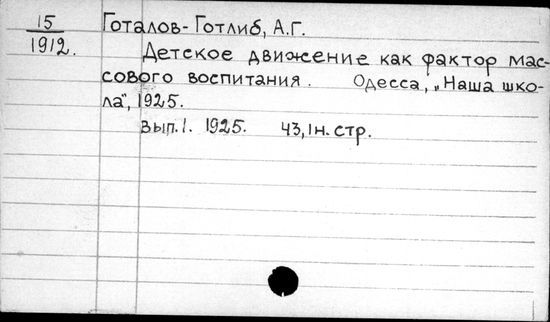 15
1912.
Готалов-Готлиб, А.Г.
Детское движение как фактор мас-
сового воспитания. Одесса, „Наша шко-
ла", 1925.
Вып.1. 1925. 43, 1н. стр.